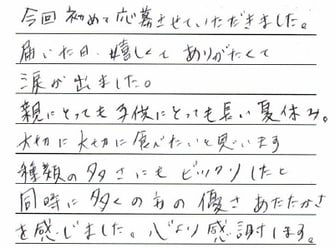 今回 初めて応募させていただきました。
届いた日、嬉しくて ありがたくて
涙が出ました。
親にとっても子供にとっても長い夏休み。
大切に大切に食べたいと思います
種類の多さにも ビックリしたと
同時に多くの方の優さ あたたかさ
を感じました。心より感謝します。